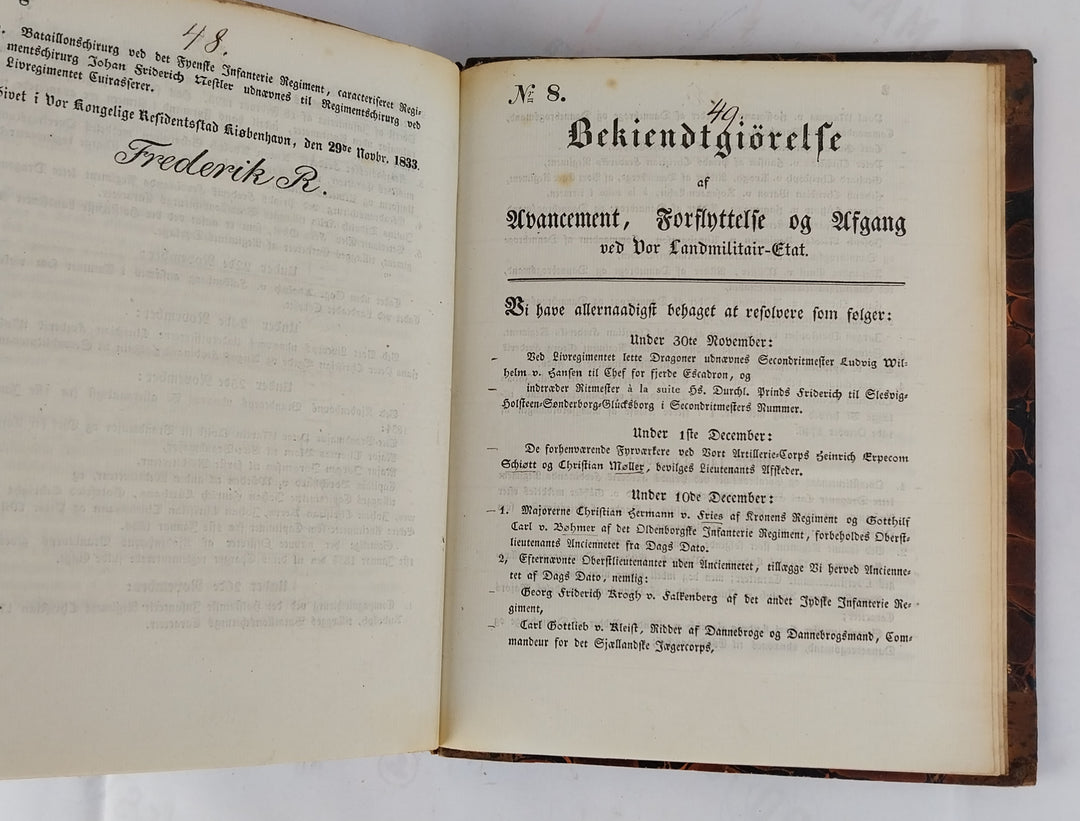 48.
Bataillonschirurg ved det Fyenske Infanterie Regiment, caracteriseret Regi-
mentschirurg Johan Friderich Nestler udnævnes til Regimentschirurg ved
Livregimentet Cuirasserer.
Givet i Vor Kongelige Residentsstad Kiøbenhavn, den 29de Novbr. 1833.
Frederik R.
49.
№ 8.
Bekiendtgiörelse
af
Avancement, Forflyttelse og Afgang
ved Vor Landmilitair-Etat.
Vi have allernaadigst behaget at resolvere som følger:
Under 30te November:
Ved Livregimentet lette Dragoner udnævnes Secondritmester Ludvig Wil-
helm v. Hansen til Chef for fjerde Escadron, og
indtræder Ritmester à la suite Hs. Durchl. Prinds Friderich til Slesvig-
Holsteen-Sønderborg-Glücksborg i Secondritmesters Nummer.
Under 1ste December:
De forhenværende Fyrværkere ved Vort Artillerie-Corps Heinrich Erpecom
Schiøtt og Christian Møller, bevilges Lieutenants Afskeder.
Under 10de December:
1. Majorerne Christian Hermann v. Fries af Kronens Regiment og Gotthilf
Carl v. Bøhmer af det Oldenborgske Infanterie Regiment, forbeholdes Oberst-
lieutenants Anciennetet fra Dags Dato.
2, Efternævnte Oberstlieutenanter uden Anciennetet, tillægge Vi herved Ancienne-
tet af Dags Dato, nemlig:
Georg Friderich Krogh v. Falkenberg af det andet Jydske Infanterie Re-
giment,
Carl Gottlieb v. Kleist, Ridder af Dannebroge og Dannebrogsmand, Com-
mandeur for det Sjællandske Jægercorps,